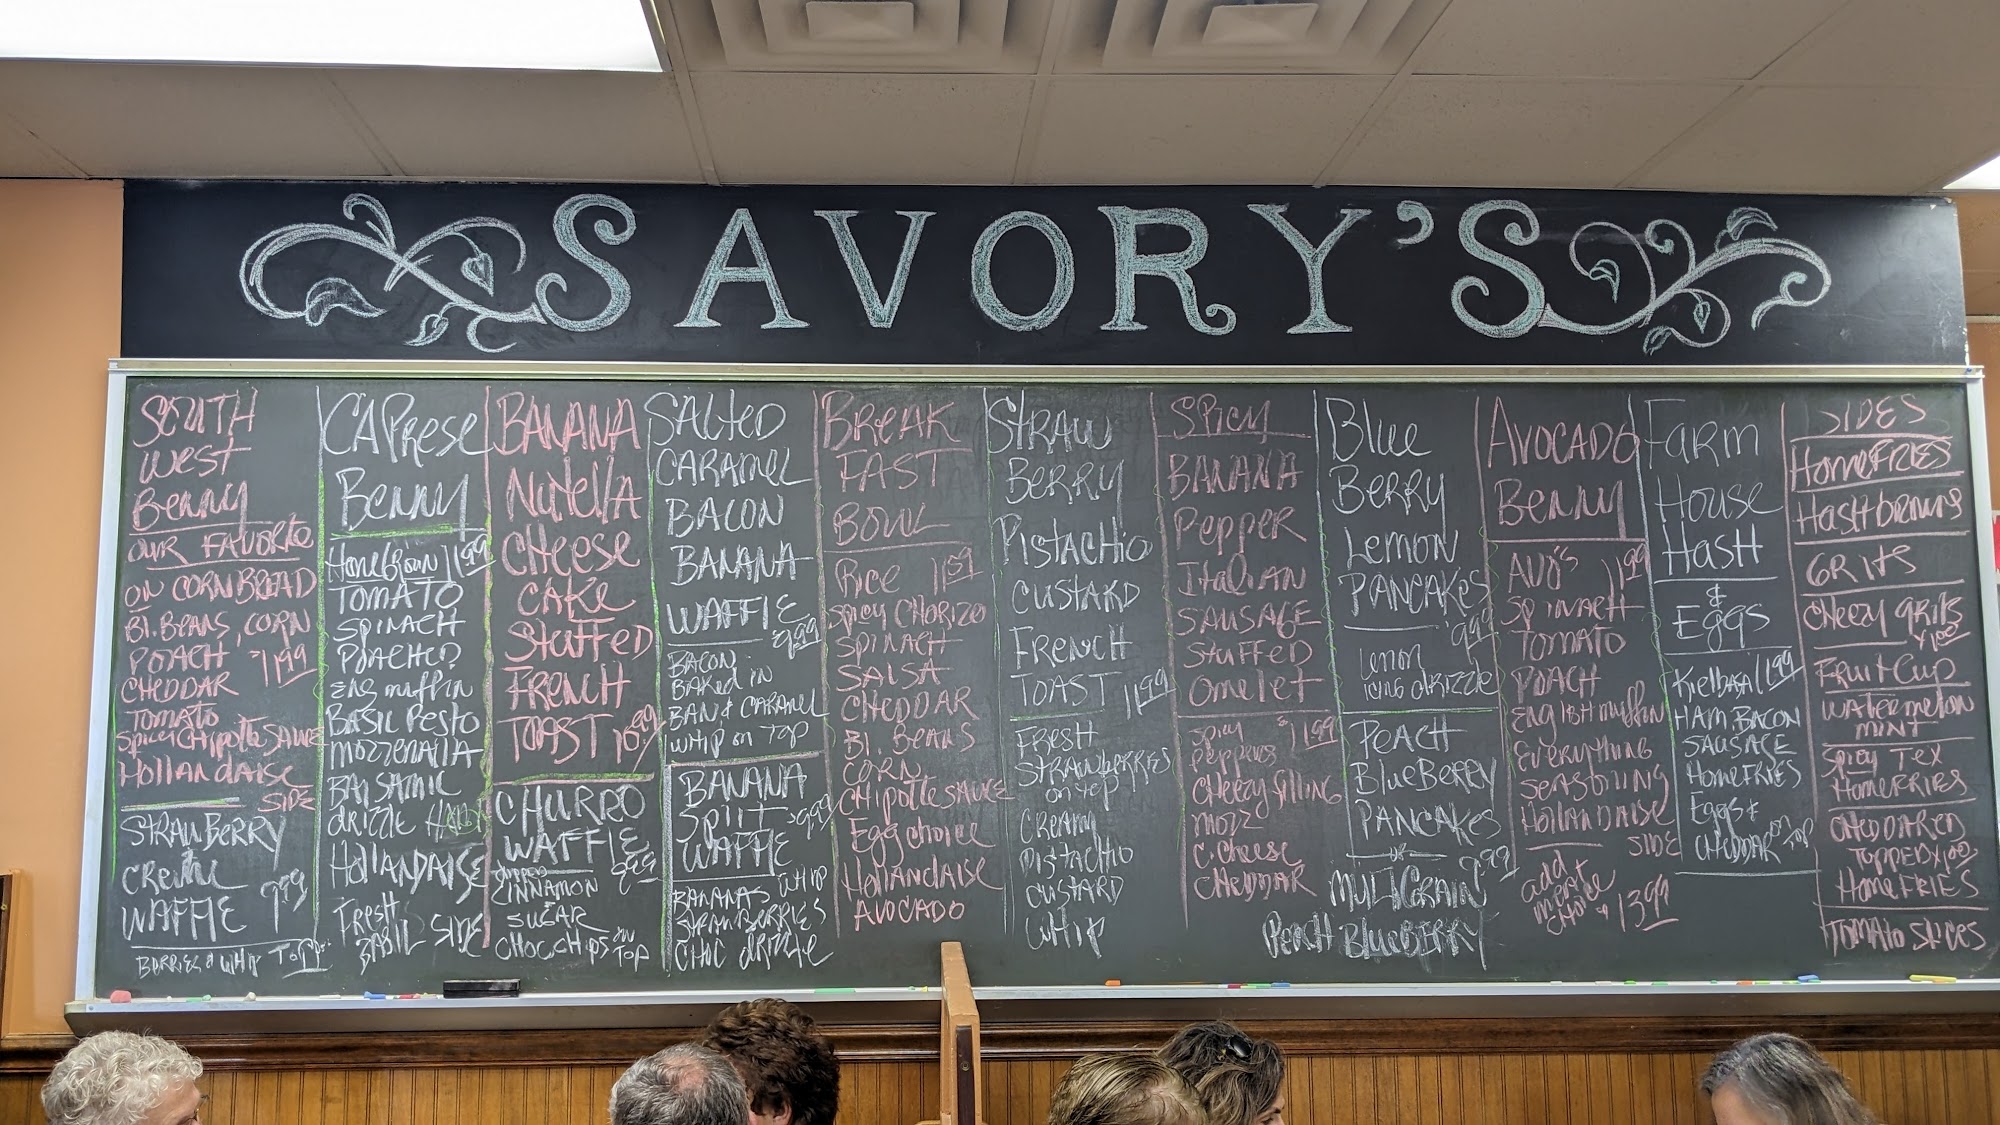 SAVORY'S
SOUTH
WEST
BENNY
OUR FAVORITE
ON CORNBREAD
BL. BEANS, CORN
POACH 11.99
CHEDDAR
TOMATO
SPICY CHIPOTLE SAUCE
HOLLANDAISE
SIDE
STRAWBERRY
CREME
WAFFLE 9.99
BERRIES & WHIP TOP
CAPRESE
BENNY
11.99
TOMATO
SPINACH
POACHED
ENG MUFFIN
BASIL PESTO
MOZZERALLA
BALSAMIC
DRIZZLE
HOLLANDAISE
FRESH
BASIL SIDE
BANANA
NUTELLA
CHEESE
CAKE
STUFFED
FRENCH
TOAST 10.99
CHURRO
WAFFLE
9.99
CINNAMON
SUGAR
CHOC CHIPS ON TOP
SALTED
CARAMEL
BACON
BANANA
WAFFLE
9.99
BACON
BAKED IN
BAN & CARAMEL
WHIP ON TOP
BANANA
SPLIT 9.99
WAFFLE
BANANAS WHIP
STRAWBERRIES
CHOC DRIZZLE
BREAK
FAST
BOWL
RICE 11.99
SPICY CHORIZO
SPINACH
SALSA
CHEDDAR
BL. BEANS
CORN
CHIPOTLE SAUCE
EGG CHOICE
HOLLANDAISE
AVOCADO
STRAW
BERRY
PISTACHIO
CUSTARD
FRENCH
TOAST 11.99
FRESH
STRAWBERRIES
ON TOP
CREAMY
PISTACHIO
CUSTARD
WHIP
SPICY
BANANA
PEPPER
ITALIAN
SAUSAGE
STUFFED
OMELET
SPICY $11.99
PEPPERS
CHEEZY FILLING
MOZZ
C. CHEESE
CHEDDAR
BLUE
BERRY
LEMON
PANCAKES
9.99
LEMON
ICING DRIZZLE
PEACH
BLUEBERRY
PANCAKES
OR 9.99
MULTIGRAIN
PEACH BLUEBERRY
AVOCADO
BENNY
AVO'S 11.99
SPINACH
TOMATO
POACH
ENGLISH MUFFIN
EVERYTHING
SEASONING
HOLLANDAISE
SIDE
ADD
MEAT
CHOICE 13.99
FARM
HOUSE
HASH
&
EGGS
KIELBASA 11.99
HAM, BACON
SAUSAGE
HOMEFRIES
EGGS &
CHEDDAR ON TOP
SIDES
HOMEFRIES
HASHBROWNS
GRITS
CHEEZY GRITS
X1.00
FRUIT CUP
WATERMELON
MINT
SPICY TEX
HOMEFRIES
CHEDDARED
TOPPED X1.00
HOMEFRIES
TOMATO SLICES